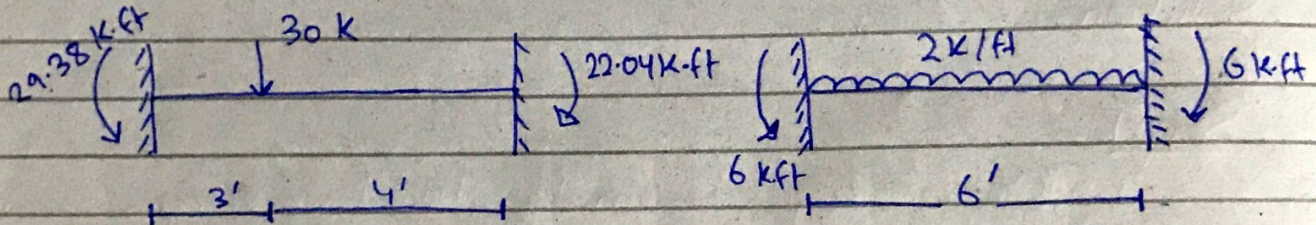 29.38 K.ft
30 K
22.04 K.ft
3'
4'
6 K.ft
2K/ft
6 K.ft
6'